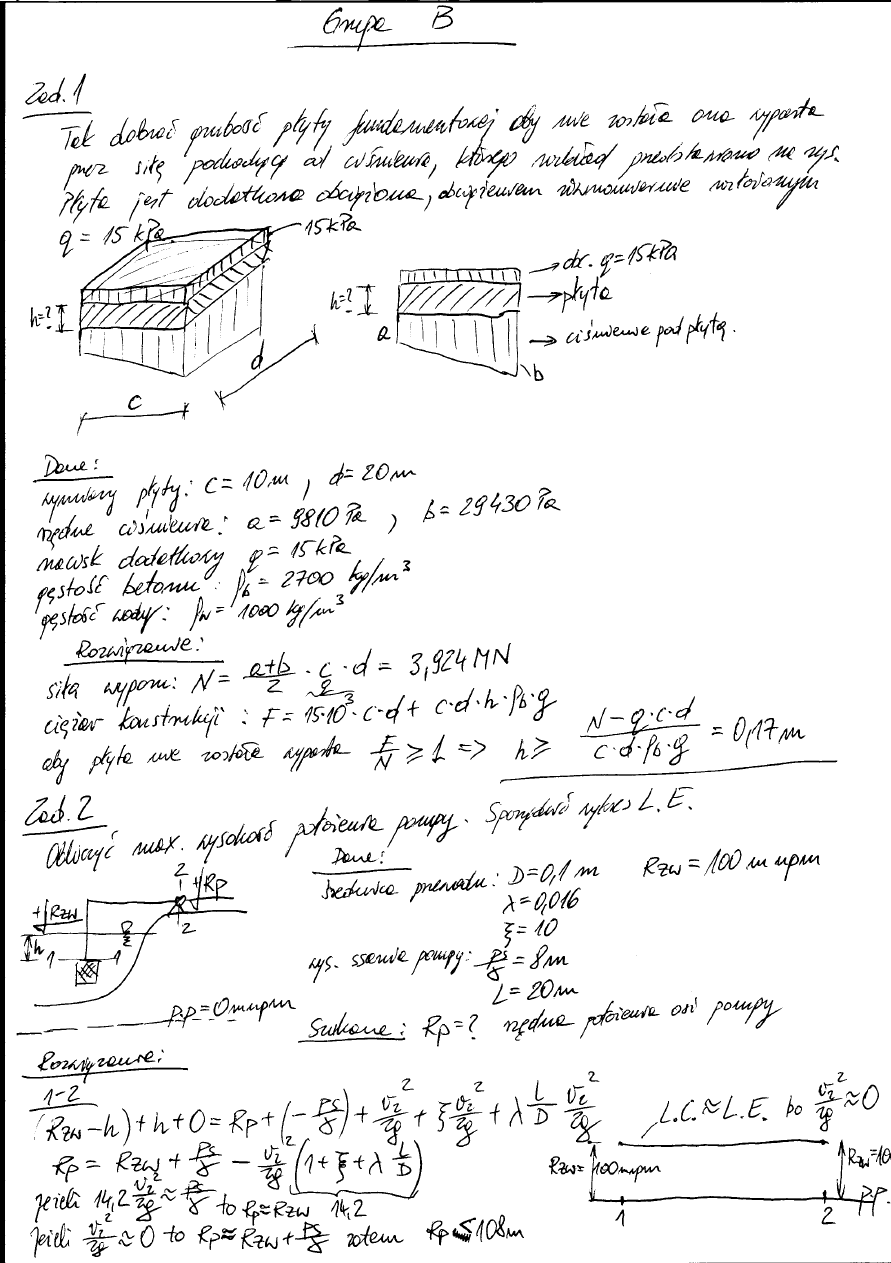 Grupa B
Zad. 1
Tak dobrać grubość płyty fundamentowej aby nie została ona wyparta
przez siłę pochodzącą od ciśnienia, którego rozkład przedstawiono na rys.
Płyta jest dodatkowo obciążona, obciążeniem równomiernie rozłożonym
q = 15 kPa.
15 kPa
h=?
c
d
→ obc. q = 15 kPa
h=?
→ płyta
a
→ ciśnienie pod płytą.
b
Dane:
wymiary płyty: c = 10 m , d = 20 m
rzędne ciśnienia: a = 9810 Pa , b = 29430 Pa
nacisk dodatkowy q = 15 kPa
gęstość betonu: ρb = 2700 kg/m³
gęstość wody: ρw = 1000 kg/m³
Rozwiązanie:
siła wyporu: N = (a+b)/2 · c · d = 3,924 MN
ciężar konstrukcji : F = 15·10³ · c·d + c·d·h·ρb·g
aby płyta nie została wyparta F/N ≥ 1 => h ≥ (N - q·c·d)/(c·d·ρb·g) = 0,17 m
Zad. 2
Obliczyć max. wysokość położenia pompy. Sporządzić wykres L.E.
Dane:
średnica przewodu: D = 0,1 m Rzw = 100 m npm
λ = 0,016
ξ = 10
wys. ssania pompy: ps/γ = 8 m
L = 20 m
Szukane: Rp = ? rzędna położenia osi pompy
2
Rp
Rzw
2
h
1
1
P.P. = 0 m npm
Rozwiązanie:
1-2
(Rzw - h) + h + 0 = Rp + (- ps/γ) + v2²/2g + ξ v2²/2g + λ L/D v2²/2g
Rp = Rzw + ps/γ - v2²/2g (1 + ξ + λ L/D)
14,2
jeżeli 14,2 v2²/2g ≈ ps/γ to Rp ≈ Rzw
jeżeli v2²/2g ≈ 0 to Rp ≈ Rzw + ps/γ zatem Rp ≤ 108 m
L.C. ≈ L.E. bo v2²/2g ≈ 0
Rzw = 100 m npm
Rzw = 10
P.P.
1
2